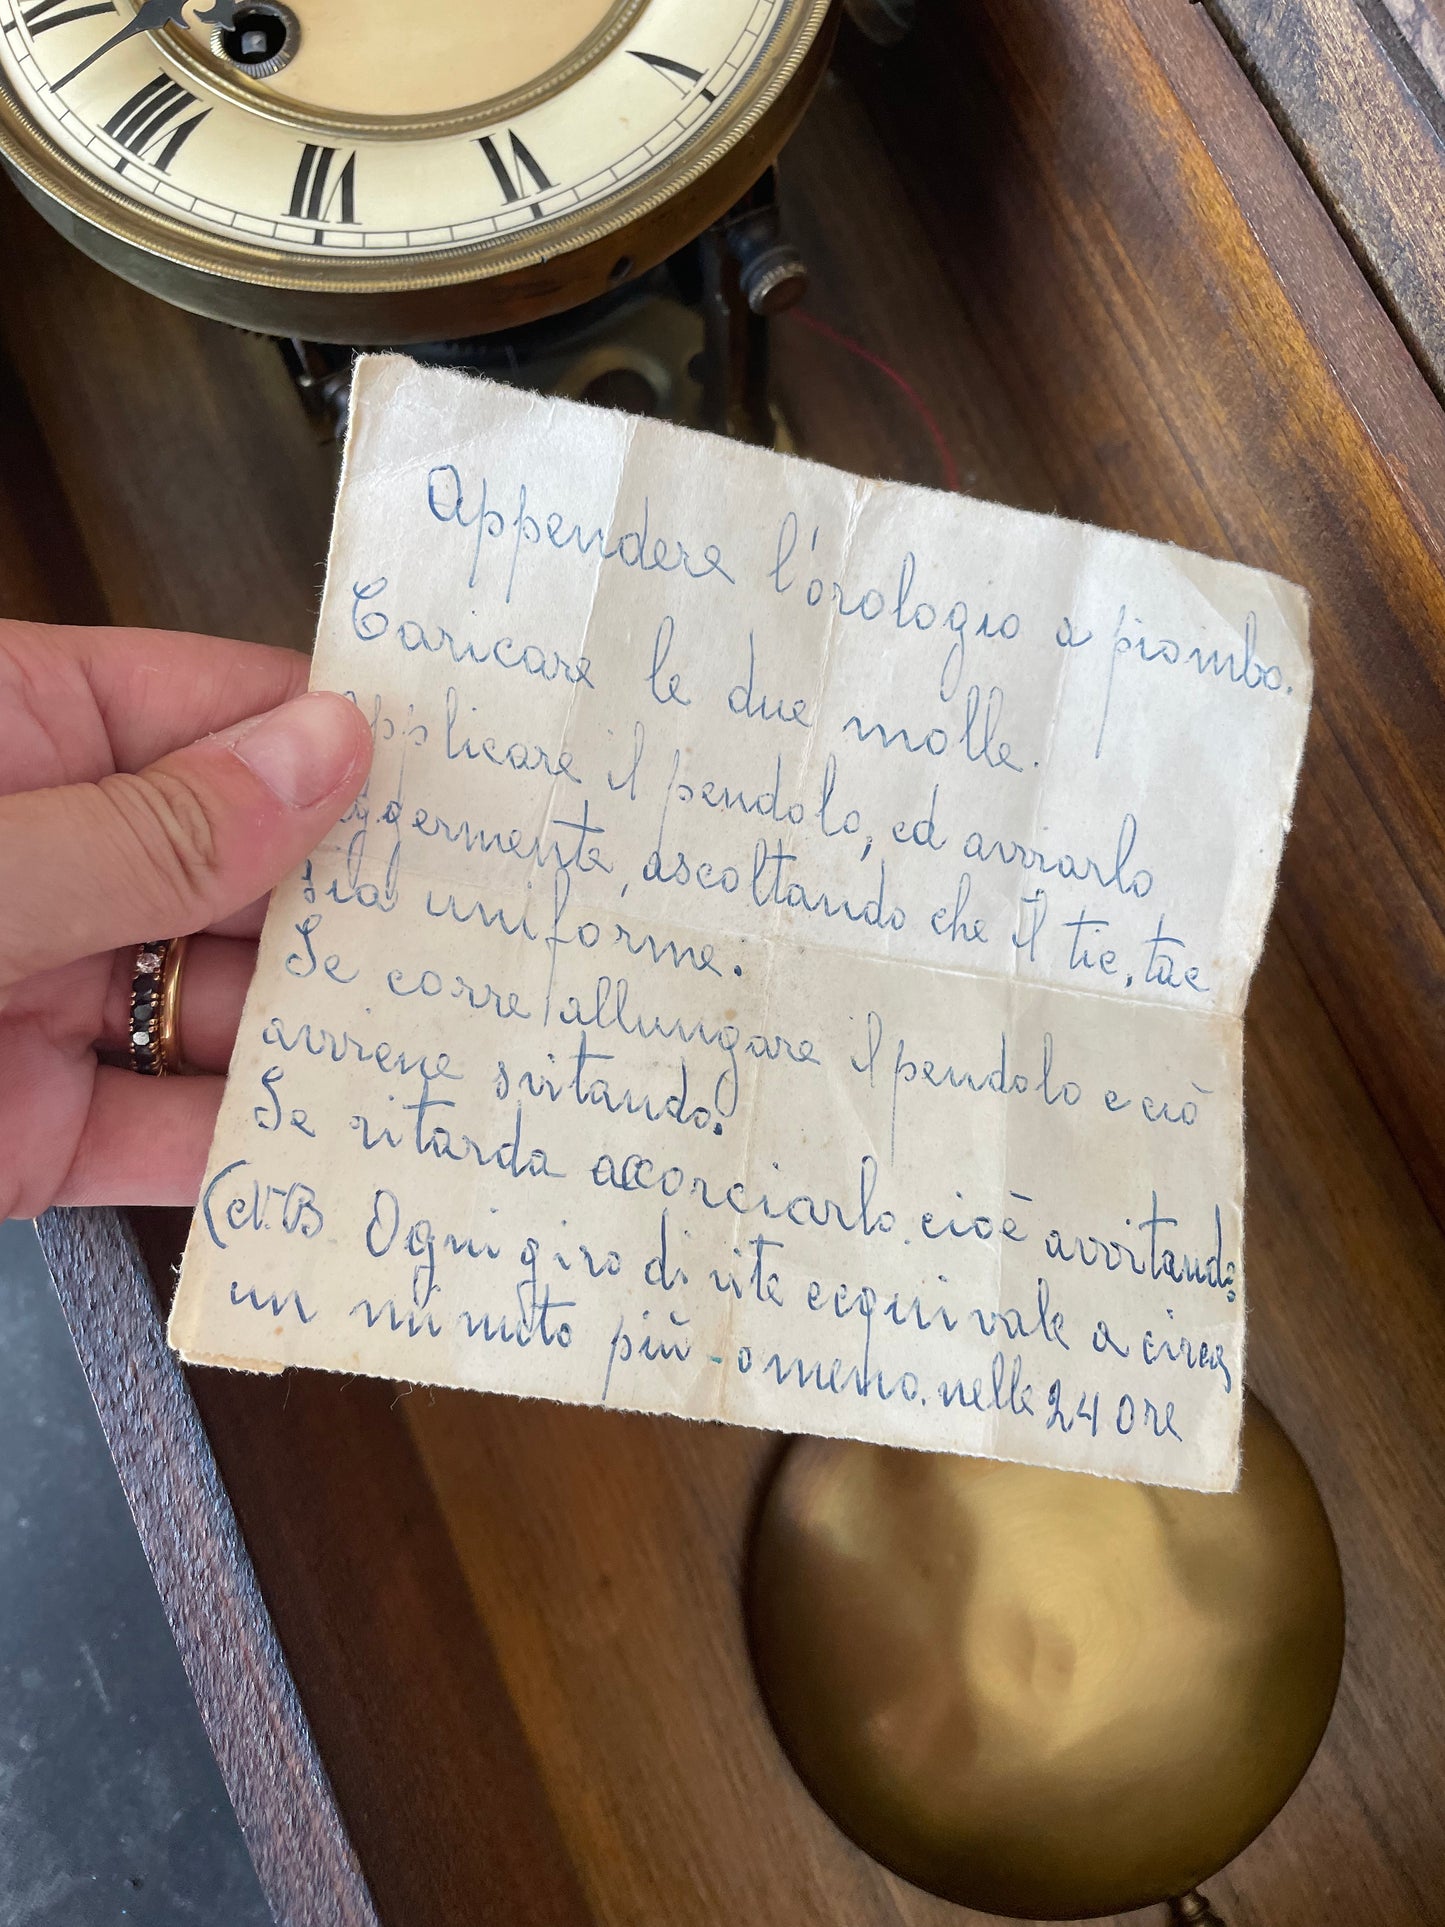 VIII VII VI V
Appendere l'orologio a piombo.
Caricare le due molle.
applicare il pendolo, ed avviarlo
leggermente, ascoltando che il tic, tac
sia uniforme.
Se corre allungare il pendolo e ciò
avviene svitando.
Se ritarda accorciarlo. cioè avvitando
(N.B. Ogni giro di vite eequivale a circa
un minuto più - o meno. nelle 24 Ore